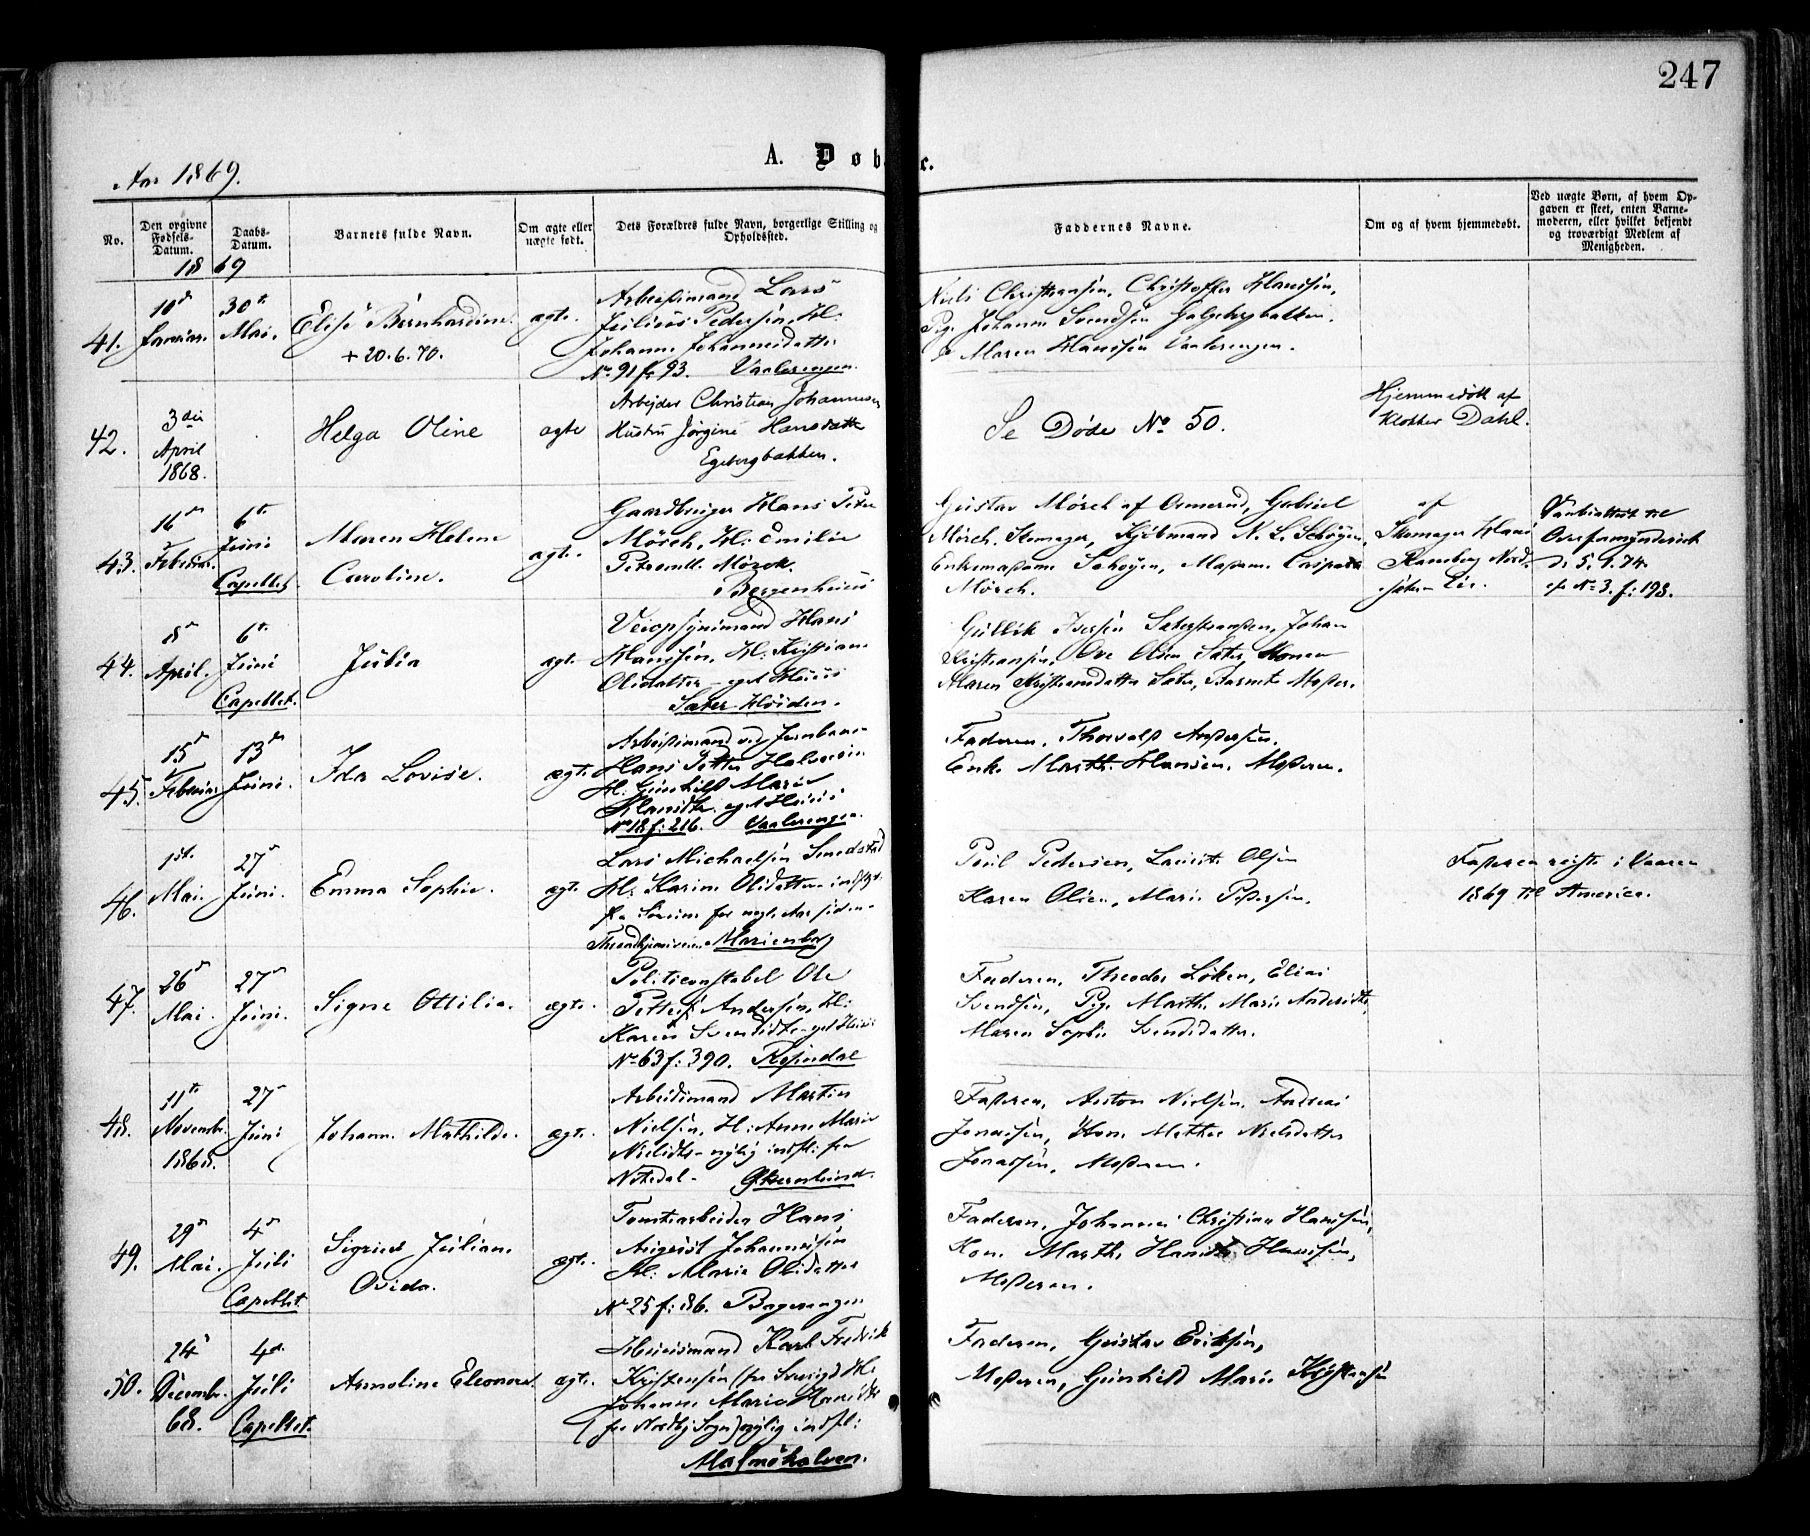 247
A. Døb
e.
Aar 1869.
No.
Den opgivne Fødsels-Datum.
Daabs-Datum.
Barnets fulde Navn.
Om ægte eller uægte født.
Dets Forældres fulde Navn, borgerlige Stilling og Opholdssted.
Faddernes Navne.
Om og af hvem hjemmedøbt.
Ved uægte Børn, af hvem Opgaven er skeet, enten Barnemoderen, eller hvilket bekjendt og troværdigt Medlem af Menigheden.
1869
41.
10de
Januar.
30te
Mai.
Elise Bernhardine.
+ 20.6.70.
ægte.
Arbeidsmand Lars
Julius Pedersen, H:
Johanne Johannesdatter
No 91 f. 93. Vaalerengen.
Niels Christiansen, Christoffer Hansen,
Pige Johanne Svendsen
Maren Hansen Vaalerengen.
42.
3die
April
1868.
Helga Oline
ægte
Arbejder Christian Johannesen
Hustru Jørgine Hansdatter
Egebergbakken.
Se Døde No 50.
Hjemmedøbt af
Klokker Dahl.
43.
16de
Februar.
6te
Juni
Capellet
Maren Helene
Caroline.
ægte.
Gaardbruger Hans Peter
Mörch, H: Emilie
Mörch.
Bergenhuus
Gustav Mörch af Ormerud, Gabriel
Mörch, Kjøbmand N. L. Schøyen,
Enkemadame Schøyen, Madame
Mörch.
af
Skomager Hans
Ramberg
d: 5.1.74.
cfr No 3. f: 198.
44.
8de
April.
6te
Juni
Capellet.
Julia
ægte
Veiopsynsmand Hans
Hansen, H: Kristiane
Olsdatter - eget Huus
Sæter Høiden.
Gullik Iversen Sæterstranden, Johan
Kristiansen, Ove Olsen Sæter, Konen
Maren Kristiansdatter Sæter, Barnets Moder.
45.
15de
Februar
13de
Juni.
Ida Lovise.
ægte
Arbeidsmand ved Jernbane
Hans Petter Halvorsen
H. Gunhild Marie
Hansdtr. eget Huus
No 18 f: 216. Vaalerengen.
Faderen, Thorvald Andersen.
Enke Marthe Hansen, Moderen.
46.
1ste
Mai.
27de
Juni.
Emma Sophie.
ægte.
Lars Michaelsen Smedstad
H: Karine Olsdatter indflyt.
for nogle Aar siden
Throndhjemsveien Marienborg
Poul Pedersen, Laurits Olsen
Karen Olsen, Marie Pedersen.
Faderen reiste i Vaaren
1869 til America.
47.
26de
Mai.
27de
Juni.
Signe Ottilia.
ægte.
Politiconstabel Ole
Petter Andersen, H:
Karen Svendsdtr - eget Huus
No 63 f: 390. Rosendal
Faderen, Theodor Løken, Elias
Svendsen, Pige Marthe Marie Andersdtr,
Maren Sophie Svendsdatter.
48.
11te
Novembr.
1868.
27de
Juni
Johanne Mathilde.
ægte.
Arbeidsmand Martin
Nielsen, H: Anne Marie
Nielsdtr - nylig indfl: fra
Nitedal -
Faderen, Anton Nielsen, Andreas
Jonassen, Kone Mathea Nielsdatter
Jonassen, Moderen.
49.
29de
Mai.
4de
Juli
Capellet.
Sigried Juliane
Ovida.
ægte.
Tomtearbeider Hans
August Johannesen
H: Marie Olsdatter
No 25 f: 86. Bagerengen
Faderen, Johannes Christian Hansen,
Kone Marthe Hansdtr Hansen,
Moderen.
50.
24de
Decembr.
68.
4de
Juli
Capellet.
Armoline Eleonora.
ægte.
Huusmand Karl Fredrik
Kristensen (fra Sverige) H:
Johanne Marie Hansdtr
(fra Nordby Sogn) nylig indfl:
Malmøkalven.
Faderen, Gustav Eriksen,
Moderen, Gunhild Marie Kristensen